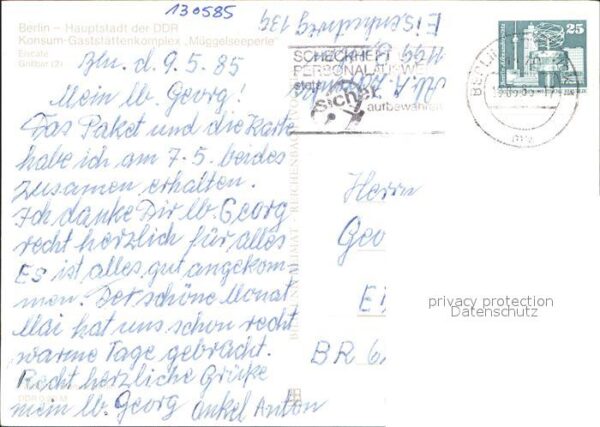 130585
Berlin – Hauptstadt der DDR
Konsum-Gaststättenkomplex „Müggelseeperle“
Grillbar
Bln. d. 9.5.85
Mein lb. Georg!
Das Paket und die Karte
habe ich am 7.5. beides
zusamen erhalten.
Ich danke Dir lb. Georg
recht herzlich für alles
Es ist alles gut angekom-
men. Der schöne Monat
Mai hat uns schon recht
warme Tage gebracht.
Recht herzliche Grüße
mein lb. Georg Onkel Anton
SCHECKHEFT
PERSONALAUSWEIS
stets
sicher
aufbewahren
25
BERLIN
Herrn
Geo
BR
privacy protection
Datenschutz